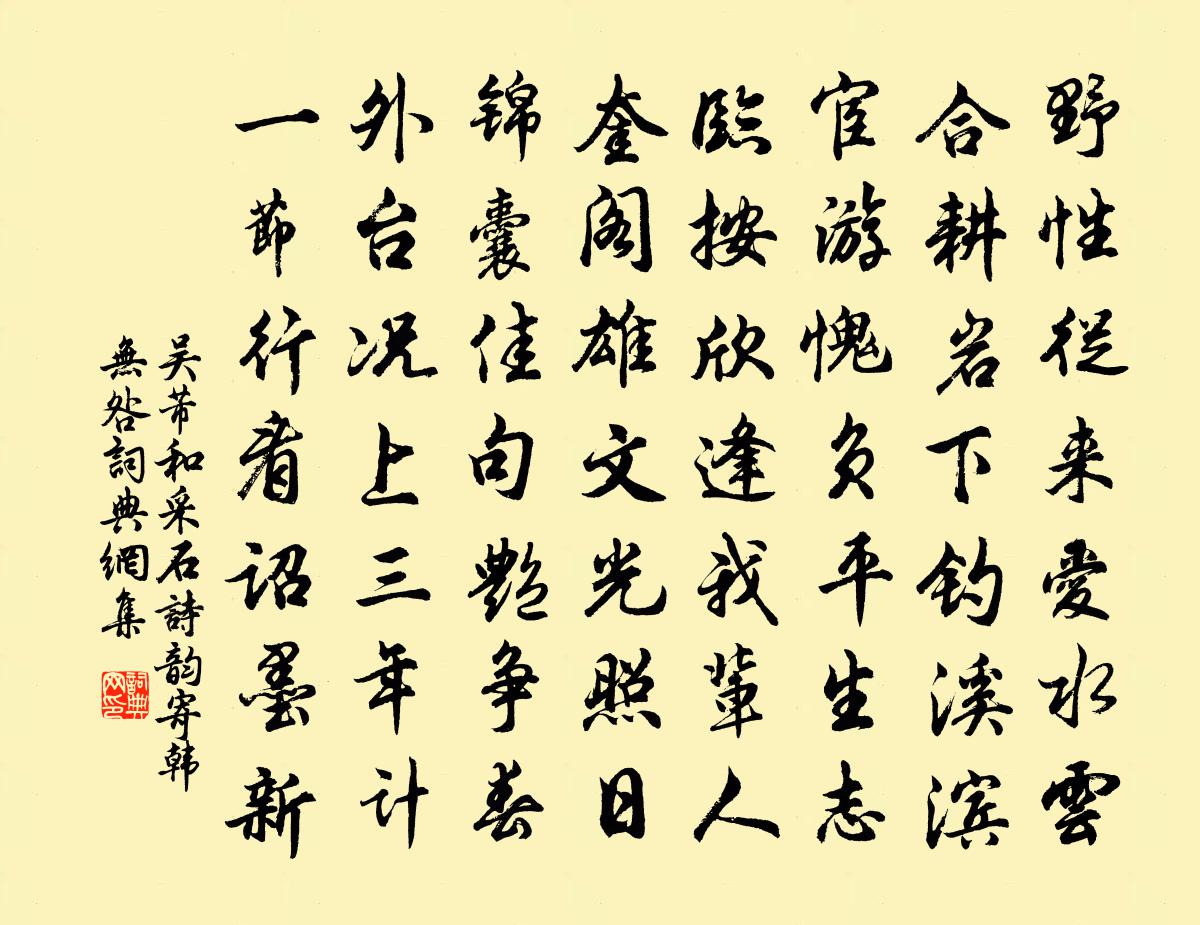 野性從来愛水雲
合耕岩下钓溪滨
宦游愧负平生志
臨按欣逢我輩人
奎阁雄文光照日
锦囊佳句艶争春
外台况上三年计
一節行看诏墨新
吴芾和采石詩韵寄韩
無咎詞典網集
詞典网印